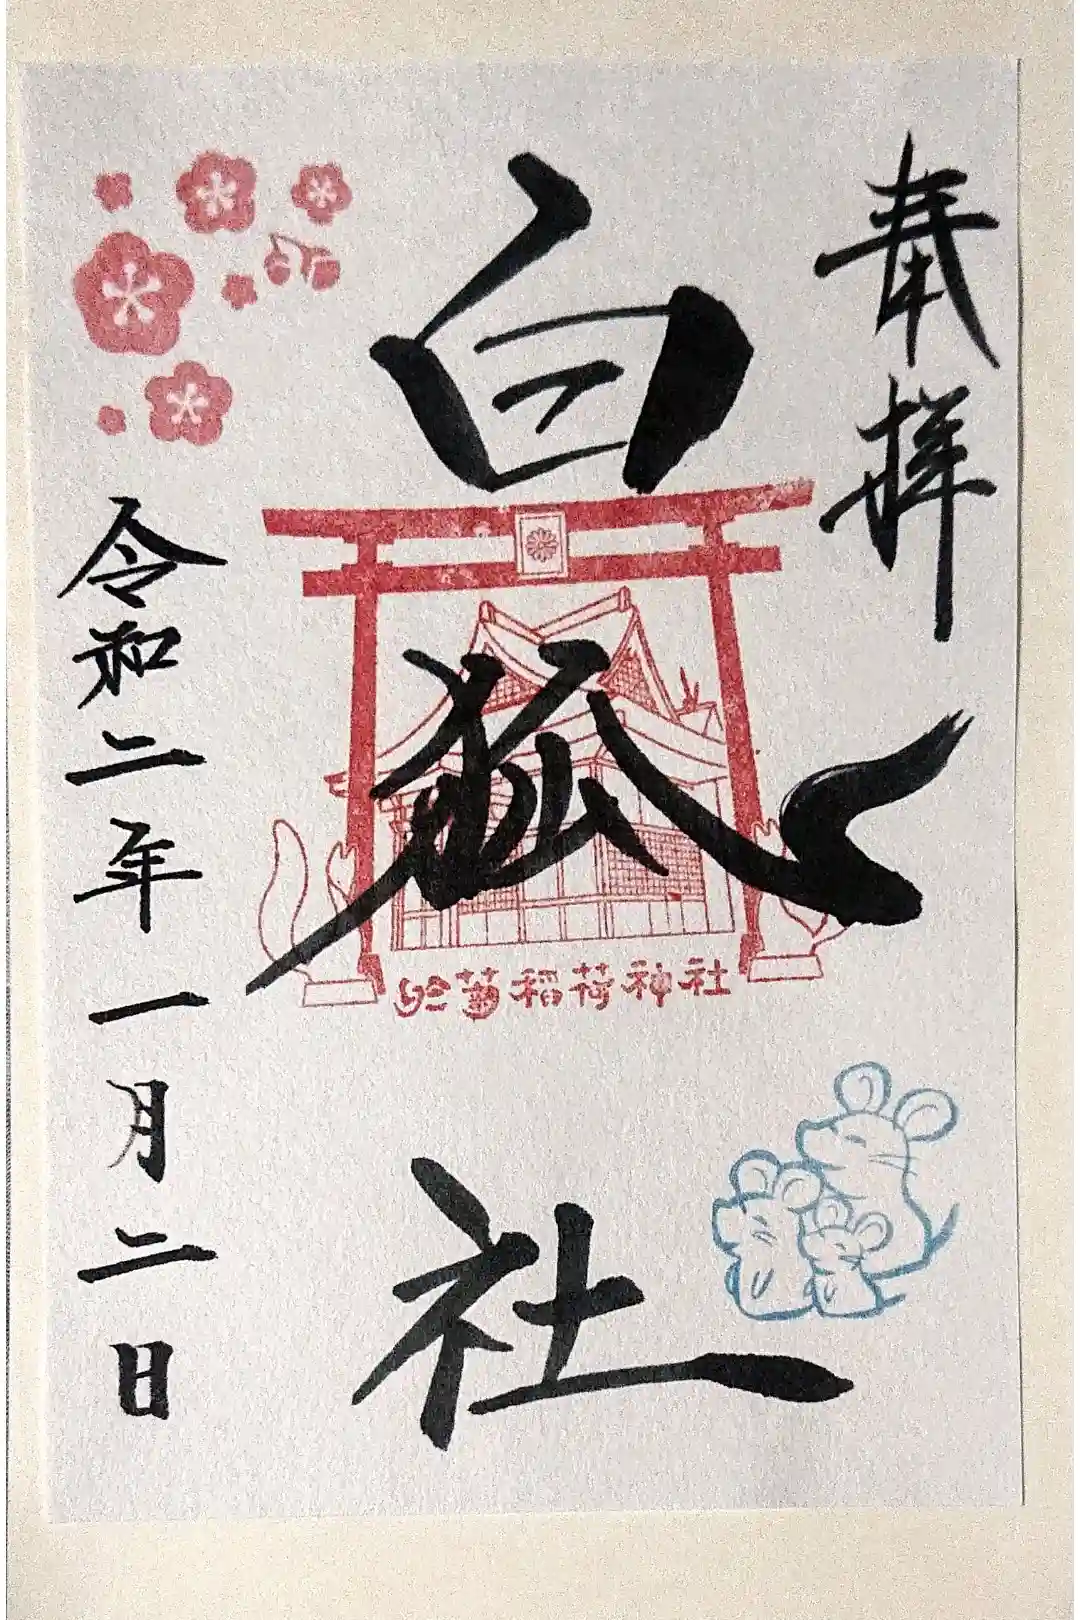 奉拝
白狐社
冠稲荷神社
令和二年一月二日